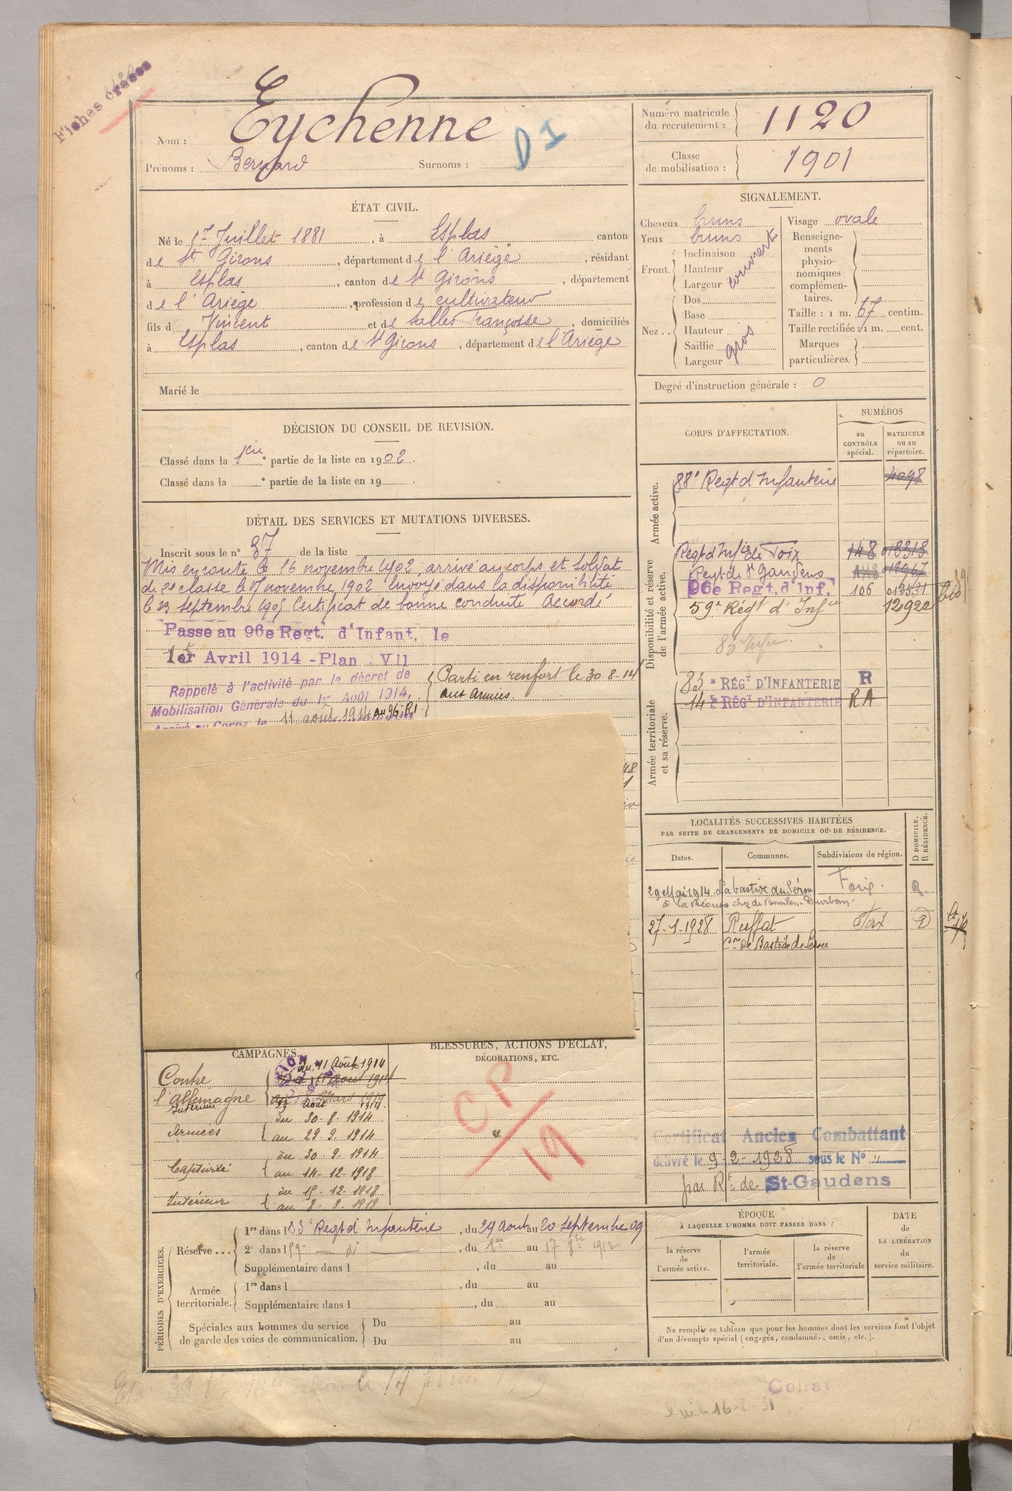 Fiches
Nom : Eychenne
Prénoms : Bernard Surnoms :
D1
Numéro matricule
du recrutement : 1120
Classe
de mobilisation : 1901
ÉTAT CIVIL.
Né le 1er Juillet 1881, à Esplas canton
de St Girons, département de l'Ariège, résidant
à Esplas, canton de St Girons, département
de l'Ariège, profession de cultivateur
fils d Vincent et de Françoise, domiciliés
à Esplas, canton de St Girons, département de l'Ariège
Marié le
SIGNALEMENT.
Cheveux bruns
Yeux bruns
Front. Inclinaison
Hauteur
Largeur
couvert
Nez... Dos
Base
Hauteur
Saillie
Largeur
gros
Visage ovale
Renseigne-
ments
physio-
nomiques
complémen-
taires.
Taille : 1 m. 67 centim.
Taille rectifiée : 1 m. cent.
Marques
particulières.
Degré d'instruction générale : 0
DÉCISION DU CONSEIL DE REVISION.
Classé dans la 1ère partie de la liste en 1902.
Classé dans la e partie de la liste en 19
DÉTAIL DES SERVICES ET MUTATIONS DIVERSES.
Inscrit sous le n° 37 de la liste
Mis en route le 16 novembre 1902, arrivé au corps et soldat
de 2e classe le 17 novembre 1902. Envoyé dans la disponibilité
le 23 septembre 1905 Certificat de bonne conduite Accordé
Passe au 96e Regt. d'Infant. le
1er Avril 1914 - Plan VII
Rappelé à l'activité par le décret de
Mobilisation Générale du 1er Août 1914,
Arrivé au Corps le 11 août 1914 au 96 RI
Parti en renfort le 30-8-14
aux Armées.
CORPS D'AFFECTATION.
NUMÉROS
au
CONTRÔLE
spécial.
MATRICULE
ou au
répertoire.
Armée active.
88e Regt d'Infanterie 4098
Disponibilité et réserve
de l'armée active.
Regt d'Infie de Foix 148 018318
Regt de St Gaudens
96e Regt. d'Inf. 106
59e Régt d'Infie 12922
Armée territoriale
et sa réserve.
83e RÉGT D'INFANTERIE R
14e RÉGT D'INFANTERIE RA
LOCALITÉS SUCCESSIVES HABITÉES
PAR SUITE DE CHANGEMENTS DE DOMICILE OU DE RÉSIDENCE.
Dates. Communes. Subdivisions de région. D DOMICILE. R RÉSIDENCE.
29 Mai 1914 Labastide du Sérou Foix R.
27-1-1928 Ruffat Foix D
Cne de Bastide de Sérou
CAMPAGNES.
Contre
l'allemagne
du 11 Août 1914
Intérieur
au 29 Août 1914
Armées
du 30-8-1914
au 29-9-1914
Captivité
du 30-9-1914
au 14-12-1918
Intérieur
du 15-12-1918
BLESSURES, ACTIONS D'ÉCLAT,
DÉCORATIONS, ETC.
CP
19
Certificat Ancien Combattant
délivré le 9-2-1928 sous le N°
par Rt de St-Gaudens
PÉRIODES D'EXERCICES.
Réserve... 1re dans l 83e Regt d'Infanterie, du 29 Aout au 20 septembre 09
2e dans l 59e d°, du 1er au 17 8bre 1912
Supplémentaire dans l , du au
Armée
territoriale. 1re dans l , du au
Supplémentaire dans l , du au
Spéciales aux hommes du service
de garde des voies de communication. Du au
Du au
ÉPOQUE
À LAQUELLE L'HOMME DOIT PASSER DANS :
la réserve
de
l'armée active.
l'armée
territoriale.
la réserve
de
l'armée territoriale
DATE
de
LA LIBÉRATION
du
service militaire.
Ne remplir ce tableau que pour les hommes dont les services font l'objet
d'un décompte spécial (engagés, condamnés, omis, etc.).